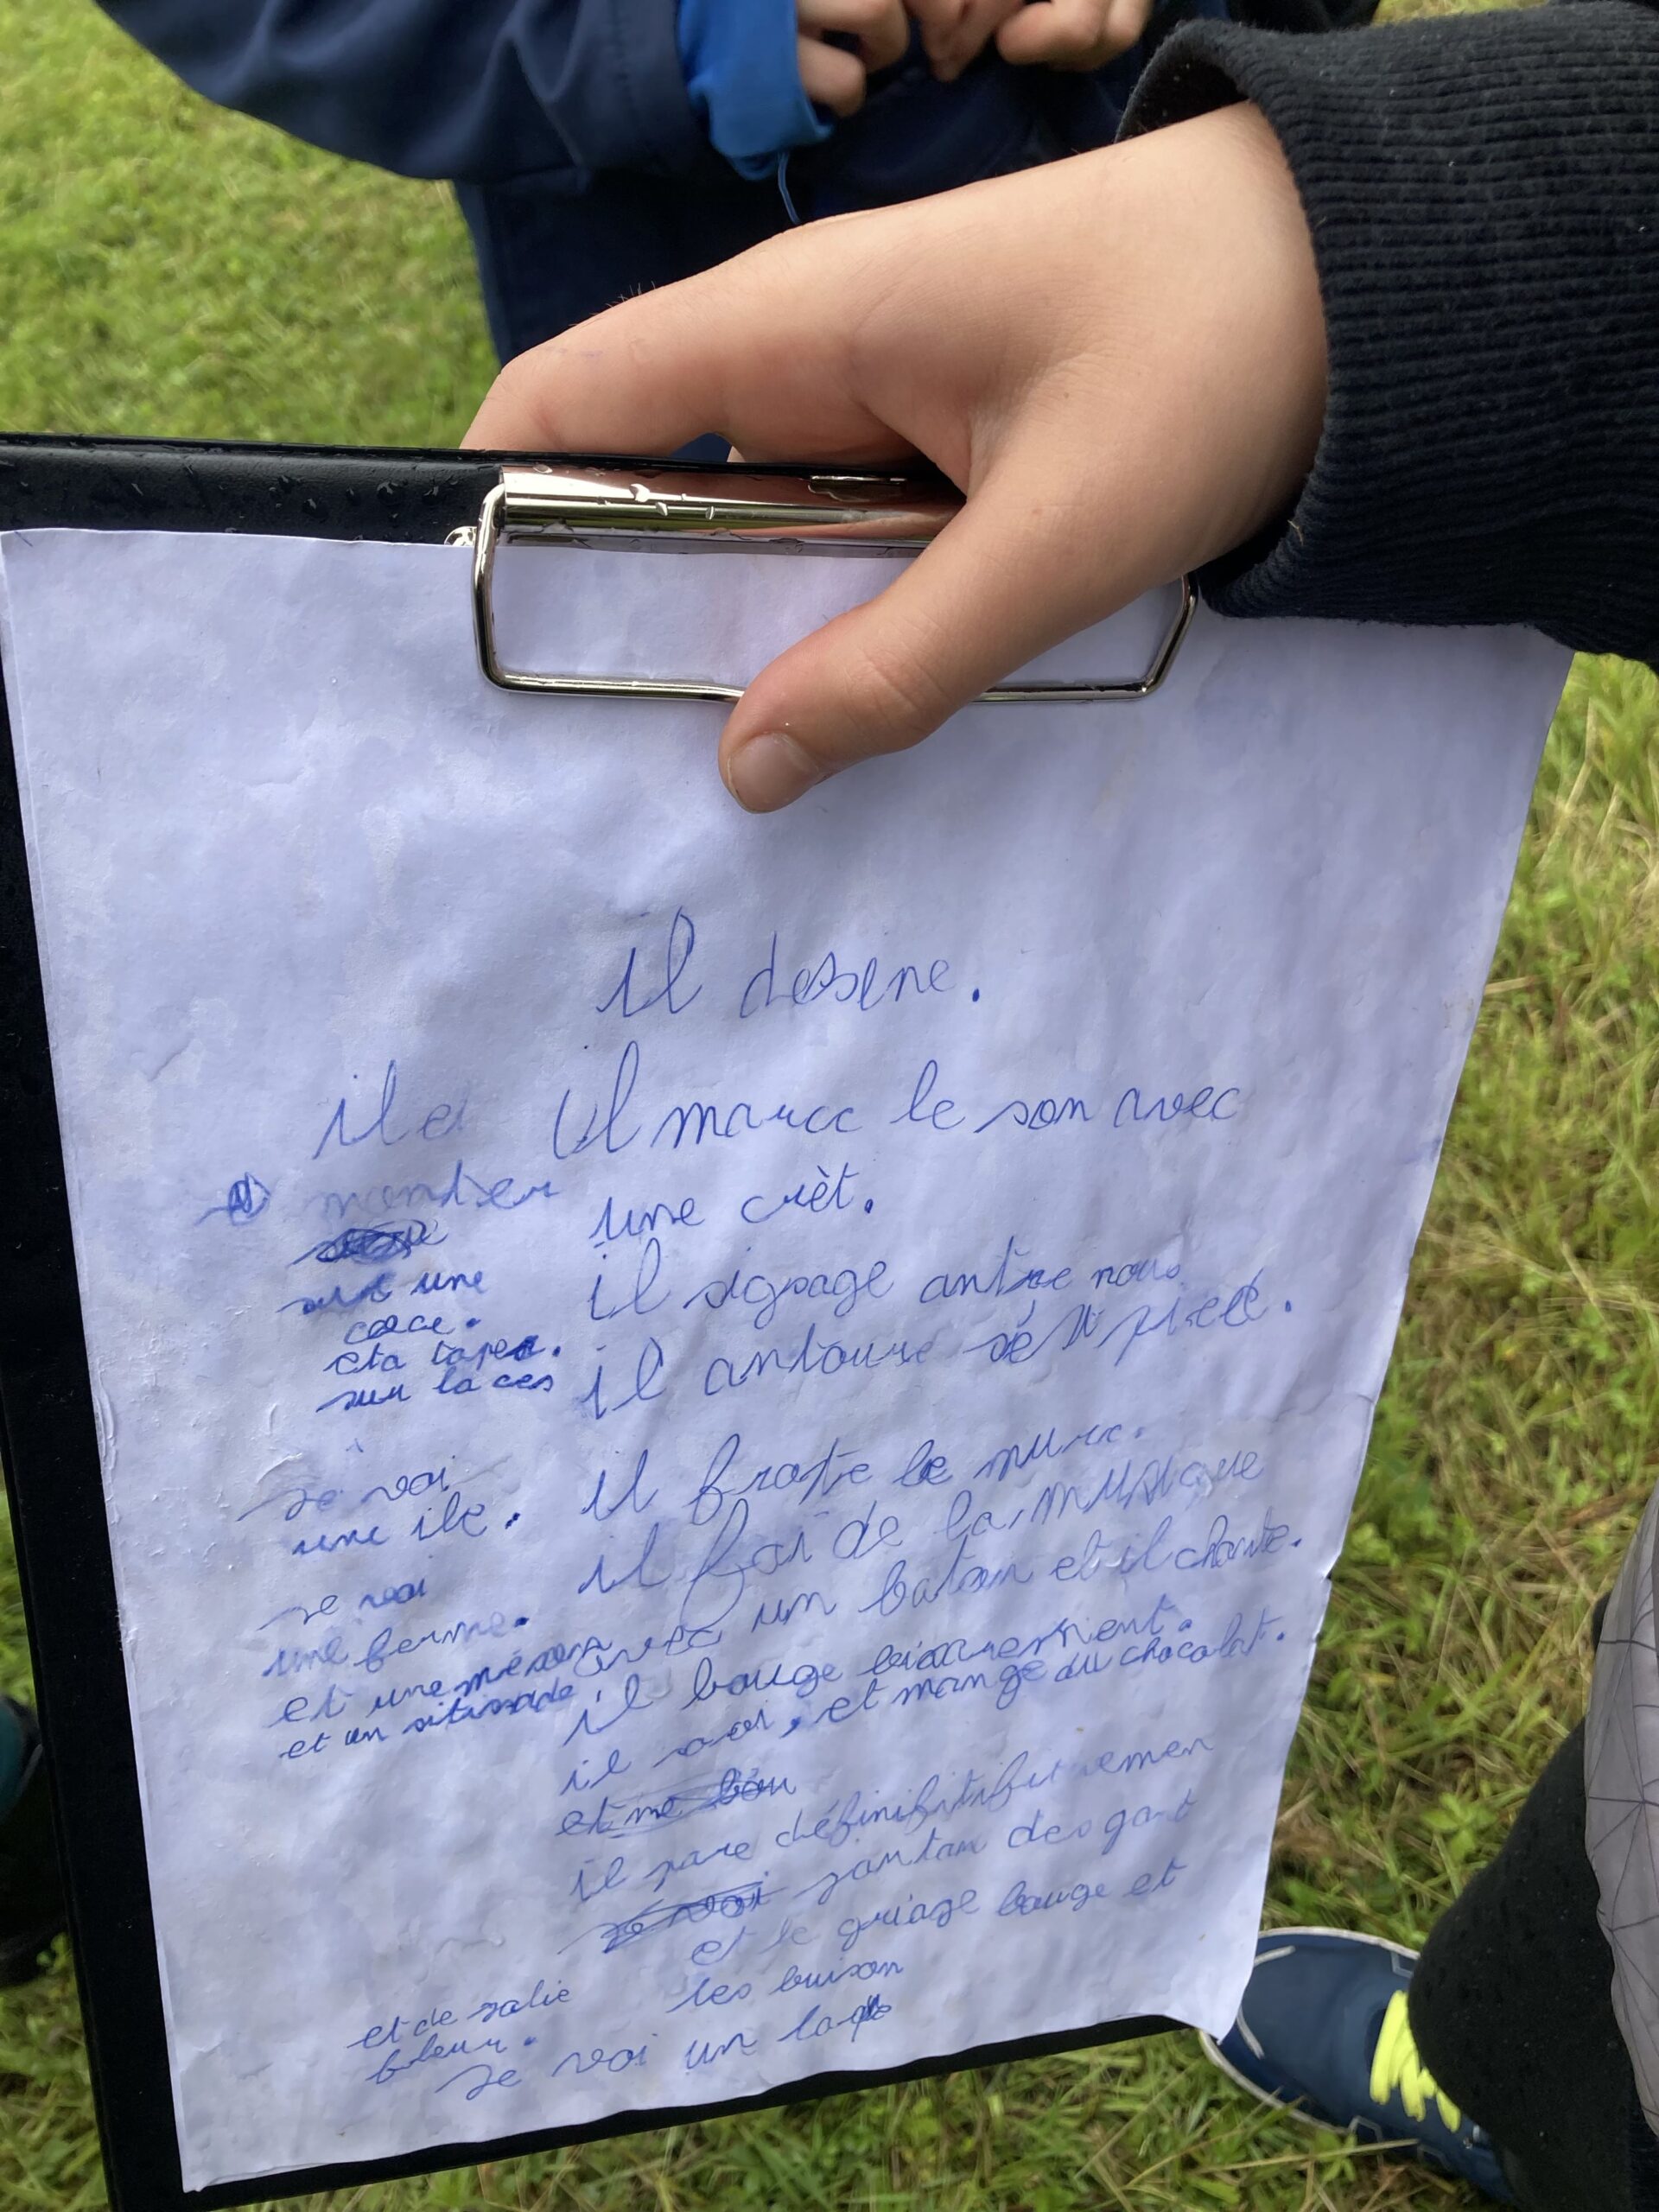 il desene.
il marce le son avec
une crèt.
il sigsage antre nous
il antoure sé pieé.
il frote le mure.
il fai de la musique
avec un baton et il chante.
il bouge bisarrement.
il voi, et mange du chocolat.
et me
il pare définifitifutemen
santan des gant
et le griage bouge et
les buison
il e
monter
sur une
cace.
eta taper.
sur la ces
je voi
une ile.
je voi
une ferme.
et une méson
et un sitissade
et de jolie
fleur.
je voi un lac